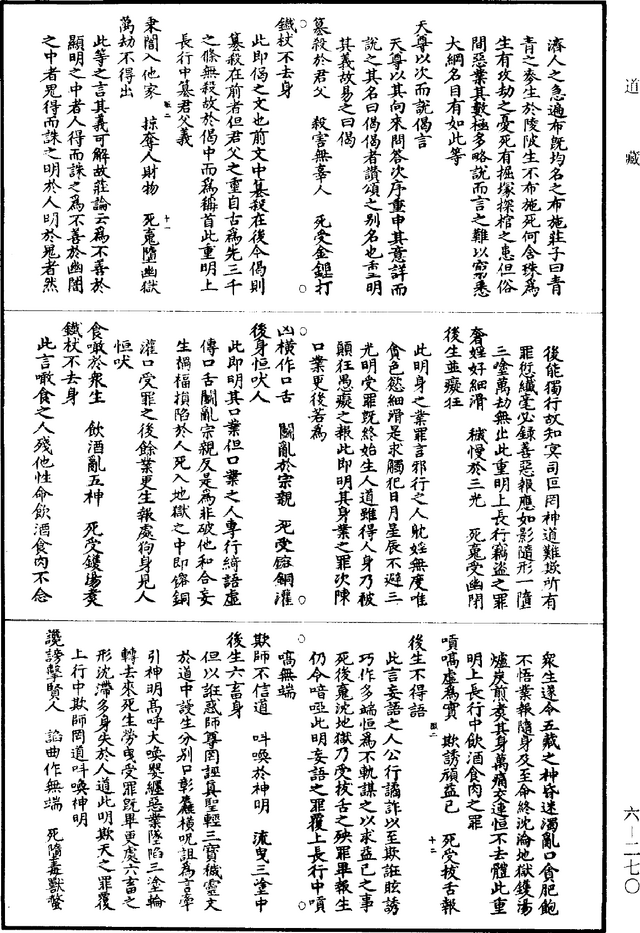 道藏
濟人之急遍布既均名之布施莊子曰青
青之麥生於陵陂生不布施死何含珠為
生有攻劫之憂死有掘塚探棺之患但俗
間惡業其數極多略說而言之難以窮悉
大綱名目有如此等
天尊以次而說偈言
天尊以其向來問答次序重申其意詳而
說之其名曰偈偈者讚頌之別名也重明
其義故易之曰偈
篡殺於君父　殺害無辜人　死受金鎚打
鐵杖不去身
此即偈之文也前文中篡殺在後今偈則
篡殺在前者但君父之重自古為先三千
之條無殺故於偈中而為稱首此重明上
長行中篡君父義
東閣入他家　掠奪人財物　死魂墮幽獄
萬劫不得出
此等之言其義可解故莊論云為不善於
顯明之中者人得而誅之為不善於幽闇
之中者鬼得而誅之明於人明於鬼者然
後能獨行故知冥司叵罔神道難欺所有
罪愆纖毫必錄善惡報應如影隨形一墮
三塗萬劫無出此重明上長行竊盜之罪
奢婬好細滑　穢慢於三光　死魂受幽閉
後生並癡狂
此明身之業罪言邪行之人躭婬無度唯
貪色慾細滑是求觸犯日月星辰不避三
光明受罪既終始生人道雖得人身乃被
顛狂愚癡之報此即明其身業之罪次陳
口業更後若為
凶橫作口舌　鬭亂於宗親　死受鎔銅灌
後身恒吠人
此即明其口業但口業之人專行綺語虛
傳口舌鬭亂宗親反是為非破他和合妄
生禍福損陷於人死入地獄之中即鎔銅
灌口受罪之後餘業更生報處狗身見人
恒吠
食噉於衆生　飲酒亂五神　死受鑊湯煑
鐵杖不去身
此言噉食之人殘他性命飲酒食肉不念
衆生遂令五藏之神昏迷濁亂口貪肥飽
不悟業報隨身及至命終沈淪地獄鑊湯
爐炭煎煑其身萬痛交連恒不去體此重
明上長行中飲酒食肉之罪
嗔嗃虛為實　欺誘頑益己　死受拔舌報
後生不得語
此言妄語之人公行譎詐以至欺誑眩誘
巧作多端恒為不軌謀之以求益己之事
死後魂沈地獄乃受拔舌之殃罪畢報生
仍令喑啞此明妄語之罪覆上長行中嗔
嗃無端
欺師不信道　呌喚於神明　流曳三塗中
後生六畜身
但以誑惑師尊罔誣真聖輕三寶穢靈文
於道中設生分別口彰麤橫呪詛為言牽
引神明高呼大喚嬰纏惡業墜陷三塗輪
轉去來死生勞曳受罪既畢更處六畜之
形沈滯多身失於人道此明欺天之罪覆
上行中欺師罔道呌喚神明
讒謗擊賢人　諂曲作無端　死墮毒獸螫
六—二七〇